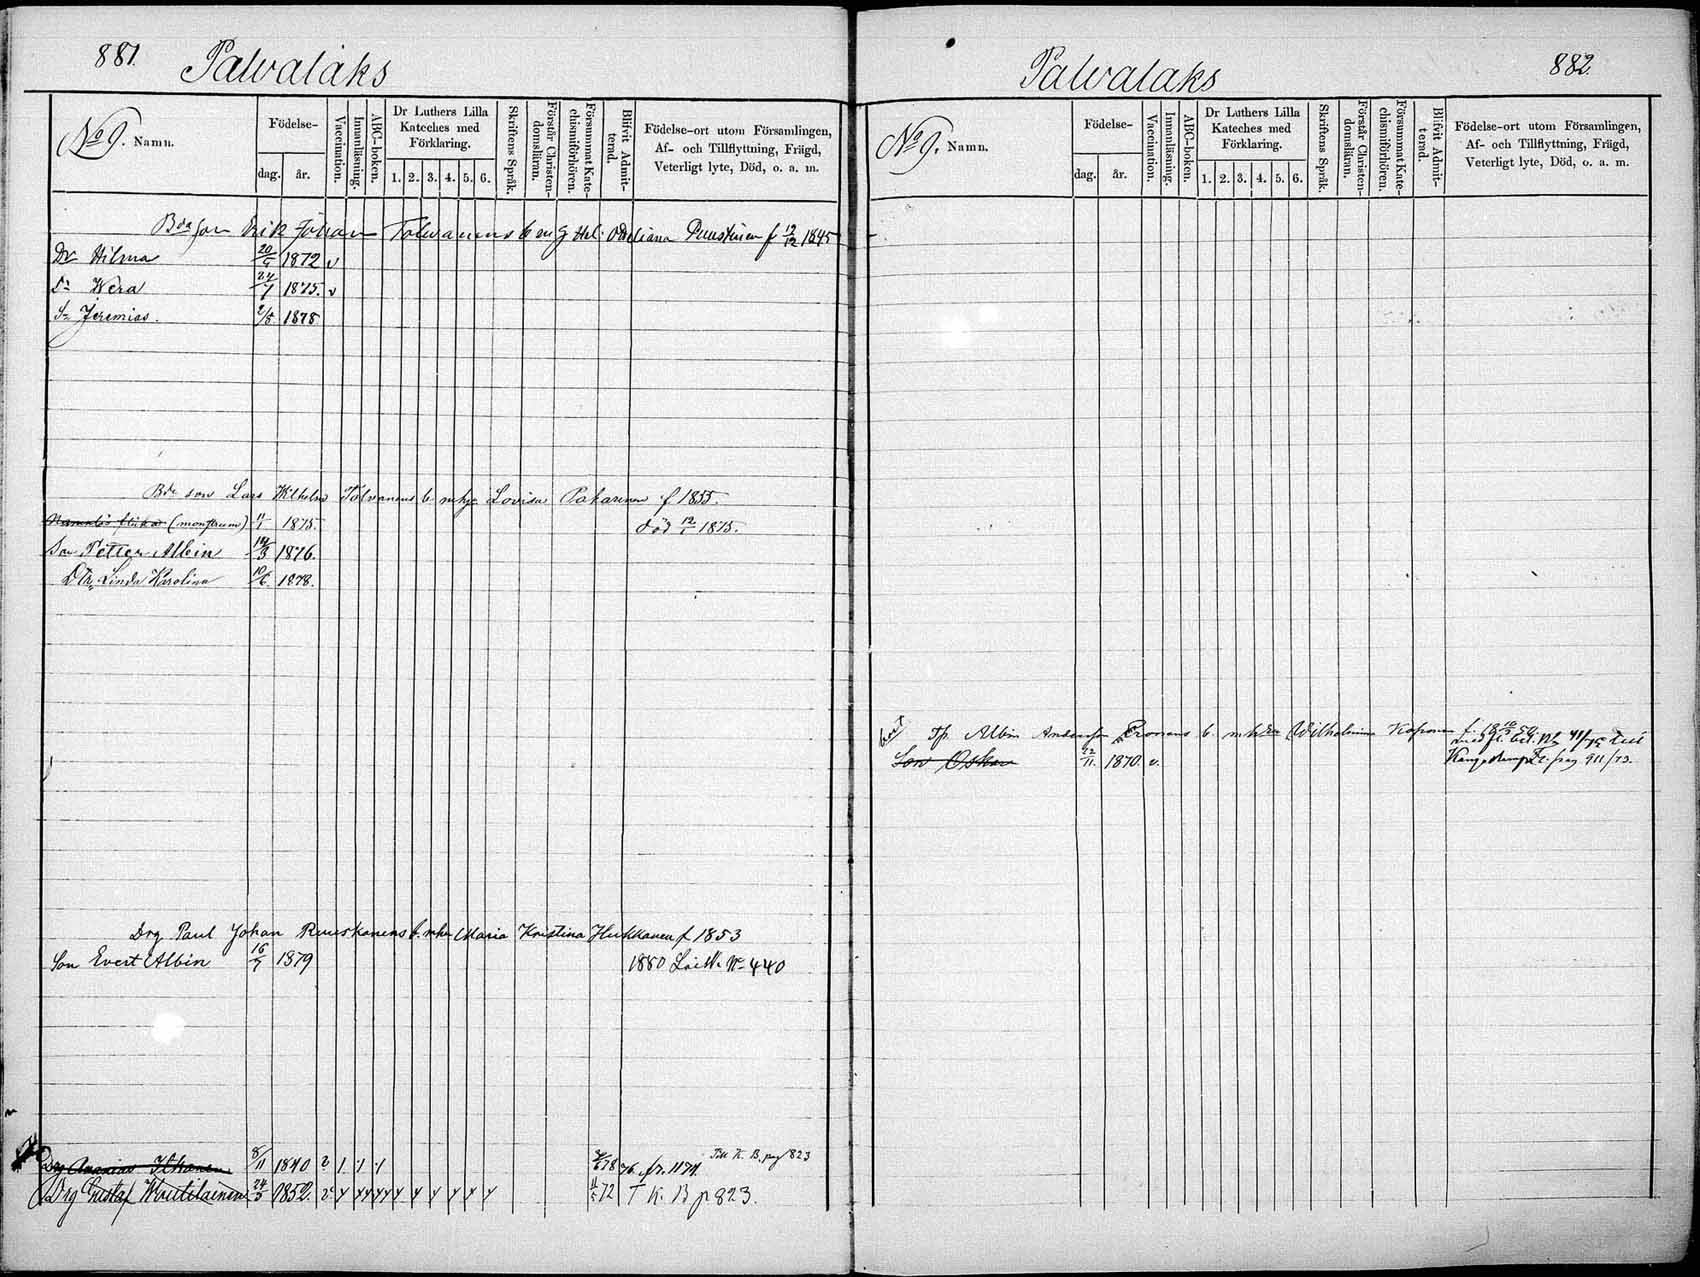 881.
Palvalaks
No 9. Namn.
Födelse-
dag. år.
Vaccination.
Innanläsning.
ABC-boken.
Dr Luthers Lilla
Kateches med
Förklaring.
1. 2. 3. 4. 5. 6.
Skriftens Språk.
Förstår Christen-
domsläran.
Försummat Kate-
chismiförhören.
Blifvit Admit-
terad.
Födelse-ort utom Församlingen,
Af- och Tillflyttning, Frägd,
Veterligt lyte, Död, o. a. m.
Bdeson Erik Johan Tolvanens b m Puustinen f 12/12 1845
Dr Hilma 1872 v
Dr Wera 24/7 1875. v
Sn Jeremias. 2/5 1878
Bde son Lars Wilhelm Tolvanens b. m hu Lovisa Pakarinen f 1855.
flicka (monstrum) 11/1 1875. död 12/1 1875.
Son Petter Albin 14/3 1876.
Dtr Linda Karolina 10/6 1878.
Drg Paul Johan Ruuskanens b. m hu Maria Kristina Hukkanen f 1853
Son Evert Albin 16/7 1879 1880 No 440
Drg Ananias Ikonen 8/11 1840 2 1 1 1 78 76 fr. 1174. Till K. B. pag 823
Drg Gustaf Woutilainen 24/5 1852. 72 T K. B p 823.
882.
Palvalaks
No 9. Namn.
Födelse-
dag. år.
Vaccination.
Innanläsning.
ABC-boken.
Dr Luthers Lilla
Kateches med
Förklaring.
1. 2. 3. 4. 5. 6.
Skriftens Språk.
Förstår Christen-
domsläran.
Försummat Kate-
chismiförhören.
Blifvit Admit-
terad.
Födelse-ort utom Församlingen,
Af- och Tillflyttning, Frägd,
Veterligt lyte, Död, o. a. m.
Tp. Albin Andersson b. m hu Wilhelmina Koponen f.
Son Oskar 22/11 1870. v. pag 911/73.